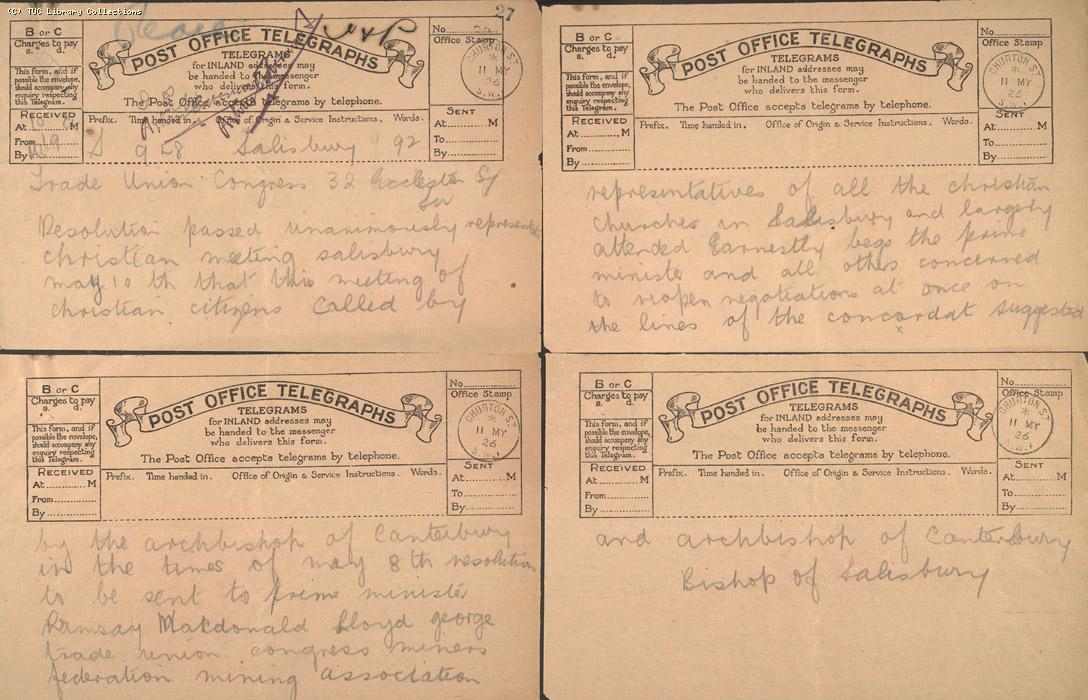 (C) TUC Library Collections
27
B or C
Charges to pay
s. d.
This form, and if
possible the envelope,
should accompany any
enquiry respecting
this Telegram.
RECEIVED
At M
From
By
POST OFFICE TELEGRAPHS
TELEGRAMS
for INLAND addresses may
be handed to the messenger
who delivers this form.
The Post Office accepts telegrams by telephone.
Prefix. Time handed in. Office of Origin & Service Instructions. Words.
S 9 58 Salisbury 92
No
Office Stamp
CHURTON ST
11 MY
26
S.W.1
SENT
At M
To
By
Trade Union Congress 32 Eccleston St
Sw
Resolution passed unanimously represent
christian meeting salisbury
may 10 th that this meeting of
christian citizens called by
B or C
Charges to pay
s. d.
This form, and if
possible the envelope,
should accompany any
enquiry respecting
this Telegram.
RECEIVED
At M
From
By
POST OFFICE TELEGRAPHS
TELEGRAMS
for INLAND addresses may
be handed to the messenger
who delivers this form.
The Post Office accepts telegrams by telephone.
Prefix. Time handed in. Office of Origin & Service Instructions. Words.
No
Office Stamp
CHURTON ST
11 MY
26
S.W.1
SENT
At M
To
By
representatives of all the christian
churches in Salisbury and largely
attended Earnestly begs the prime
ministe and all others concerned
to reopen negotiations at once on
the lines of the concordat suggested
B or C
Charges to pay
s. d.
This form, and if
possible the envelope,
should accompany any
enquiry respecting
this Telegram.
RECEIVED
At M
From
By
POST OFFICE TELEGRAPHS
TELEGRAMS
for INLAND addresses may
be handed to the messenger
who delivers this form.
The Post Office accepts telegrams by telephone.
Prefix. Time handed in. Office of Origin & Service Instructions. Words.
No
Office Stamp
CHURTON ST
11 MY
26
S.W.1
SENT
At M
To
By
by the archbishop of Canterbury
in the times of may 8th resolution
to be sent to prime minister
Ramsay Macdonald Lloyd george
trade union congress miners
federation mining association
B or C
Charges to pay
s. d.
This form, and if
possible the envelope,
should accompany any
enquiry respecting
this Telegram.
RECEIVED
At M
From
By
POST OFFICE TELEGRAPHS
TELEGRAMS
for INLAND addresses may
be handed to the messenger
who delivers this form.
The Post Office accepts telegrams by telephone.
Prefix. Time handed in. Office of Origin & Service Instructions. Words.
No
Office Stamp
CHURTON ST
11 MY
26
S.W.1
SENT
At M
To
By
and archbishop of Canterbury
Bishop of Salisbury